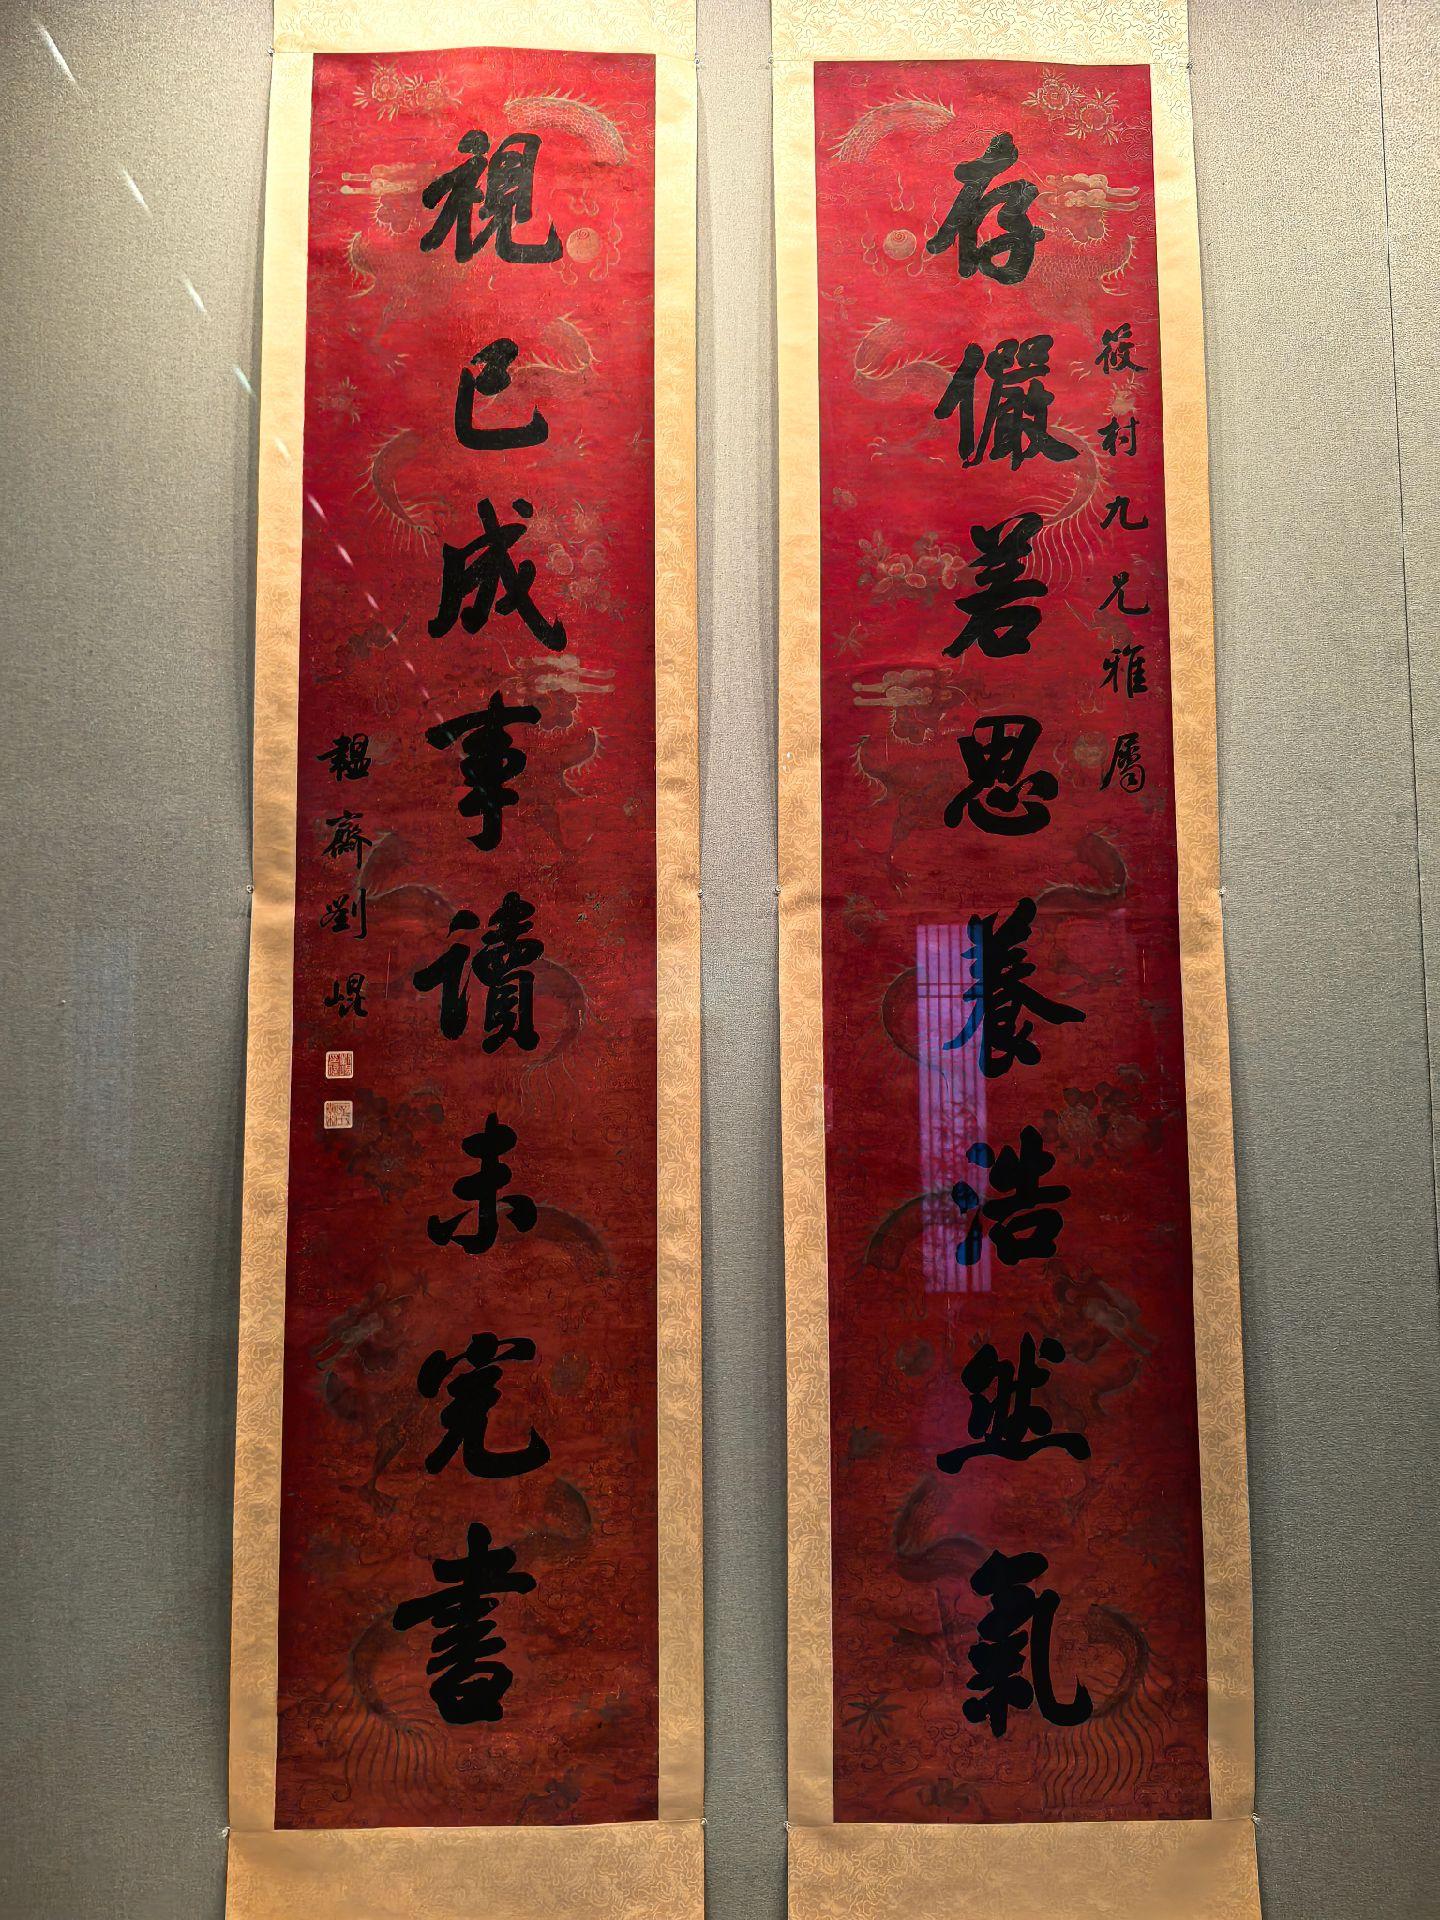 存儼若思養浩然氣
筱村九兄雅屬
視已成事讀未完書
韞齋劉崐